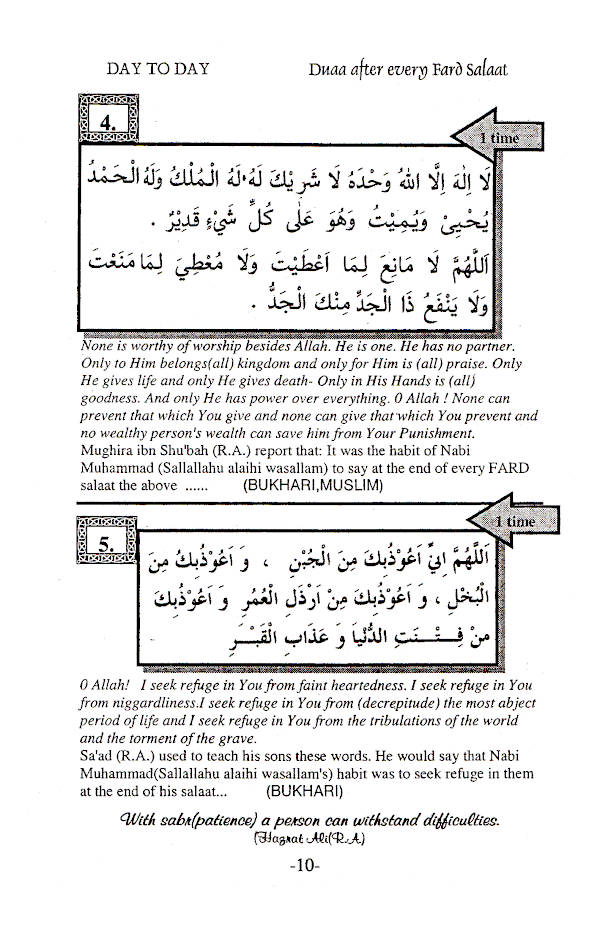 DAY TO DAY Duaa after every Fard Salaat
4.
1 time
لَا اِلٰهَ اِلَّا اللهُ وَحْدَهُ لَا شَرِيْكَ لَهُ، لَهُ الْمُلْكُ وَلَهُ الْحَمْدُ
يُحْيِيْ وَيُمِيْتُ وَهُوَ عَلٰى كُلِّ شَيْءٍ قَدِيْرٌ .
اَللّٰهُمَّ لَا مَانِعَ لِمَا اَعْطَيْتَ وَلَا مُعْطِيَ لِمَا مَنَعْتَ
وَلَا يَنْفَعُ ذَا الْجَدِّ مِنْكَ الْجَدُّ .
None is worthy of worship besides Allah. He is one. He has no partner.
Only to Him belongs(all) kingdom and only for Him is (all) praise. Only
He gives life and only He gives death- Only in His Hands is (all)
goodness. And only He has power over everything. O Allah ! None can
prevent that which You give and none can give that which You prevent and
no wealthy person's wealth can save him from Your Punishment.
Mughira ibn Shu'bah (R.A.) report that: It was the habit of Nabi
Muhammad (Sallallahu alaihi wasallam) to say at the end of every FARD
salaat the above ...... (BUKHARI,MUSLIM)
1 time
5.
اَللّٰهُمَّ اِنِّيْ اَعُوْذُبِكَ مِنَ الْجُبْنِ ، وَ اَعُوْذُبِكَ مِنَ
الْبُخْلِ ، وَ اَعُوْذُبِكَ مِنْ اَرْذَلِ الْعُمُرِ وَ اَعُوْذُبِكَ
مِنْ فِـتْـنَتِ الدُّنْيَا وَ عَذَابِ الْقَبْـرِ
O Allah! I seek refuge in You from faint heartedness. I seek refuge in You
from niggardliness.I seek refuge in You from (decrepitude) the most abject
period of life and I seek refuge in You from the tribulations of the world
and the torment of the grave.
Sa'ad (R.A.) used to teach his sons these words. He would say that Nabi
Muhammad(Sallallahu alaihi wasallam's) habit was to seek refuge in them
at the end of his salaat... (BUKHARI)
With sabr(patience) a person can withstand difficulties.
(Hazrat Ali(R.A)
-10-